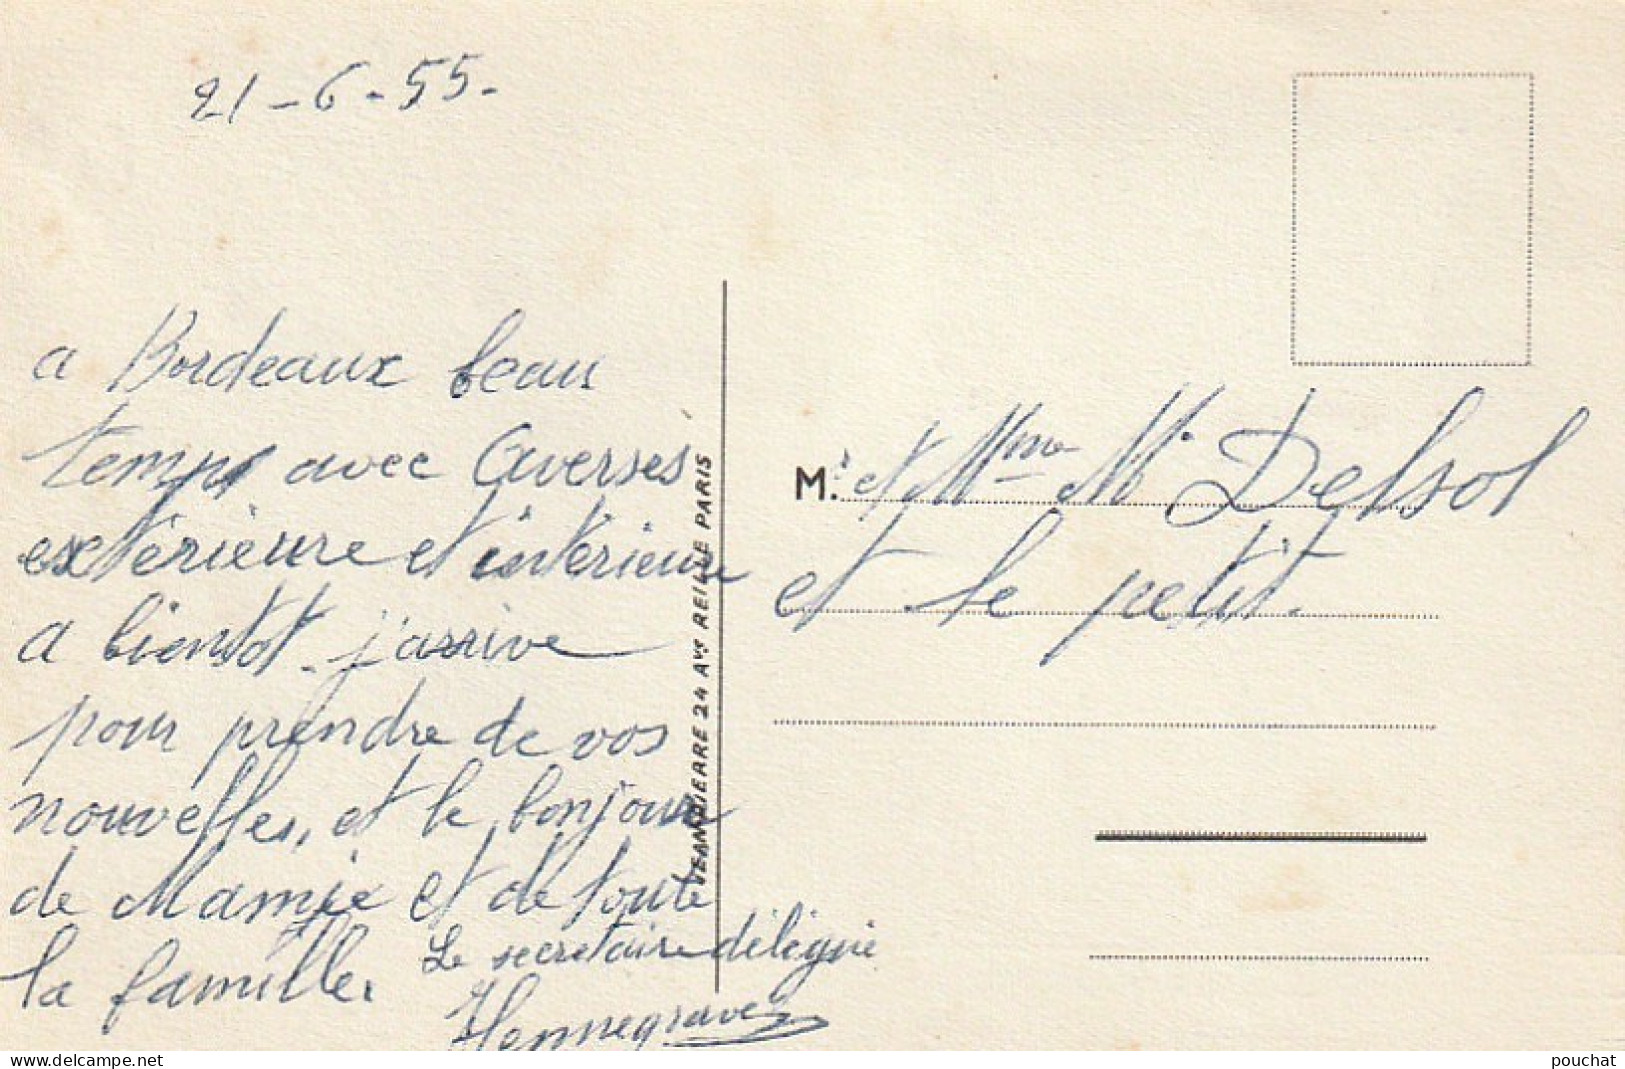 21-6-55-
a Bordeaux beau
temps avec averses
extérieure et intérieure
a bientot. j'arrive
pour prendre de vos
nouvelles, et le bonjour
de Mamie et de toute
la famille.
Le secretaire délégué
Hennegrave
JEANDIERRE 24 AVE REILLE PARIS
M. et Mme M. Delsol
et le petit.
www.delcampe.net
pouchat